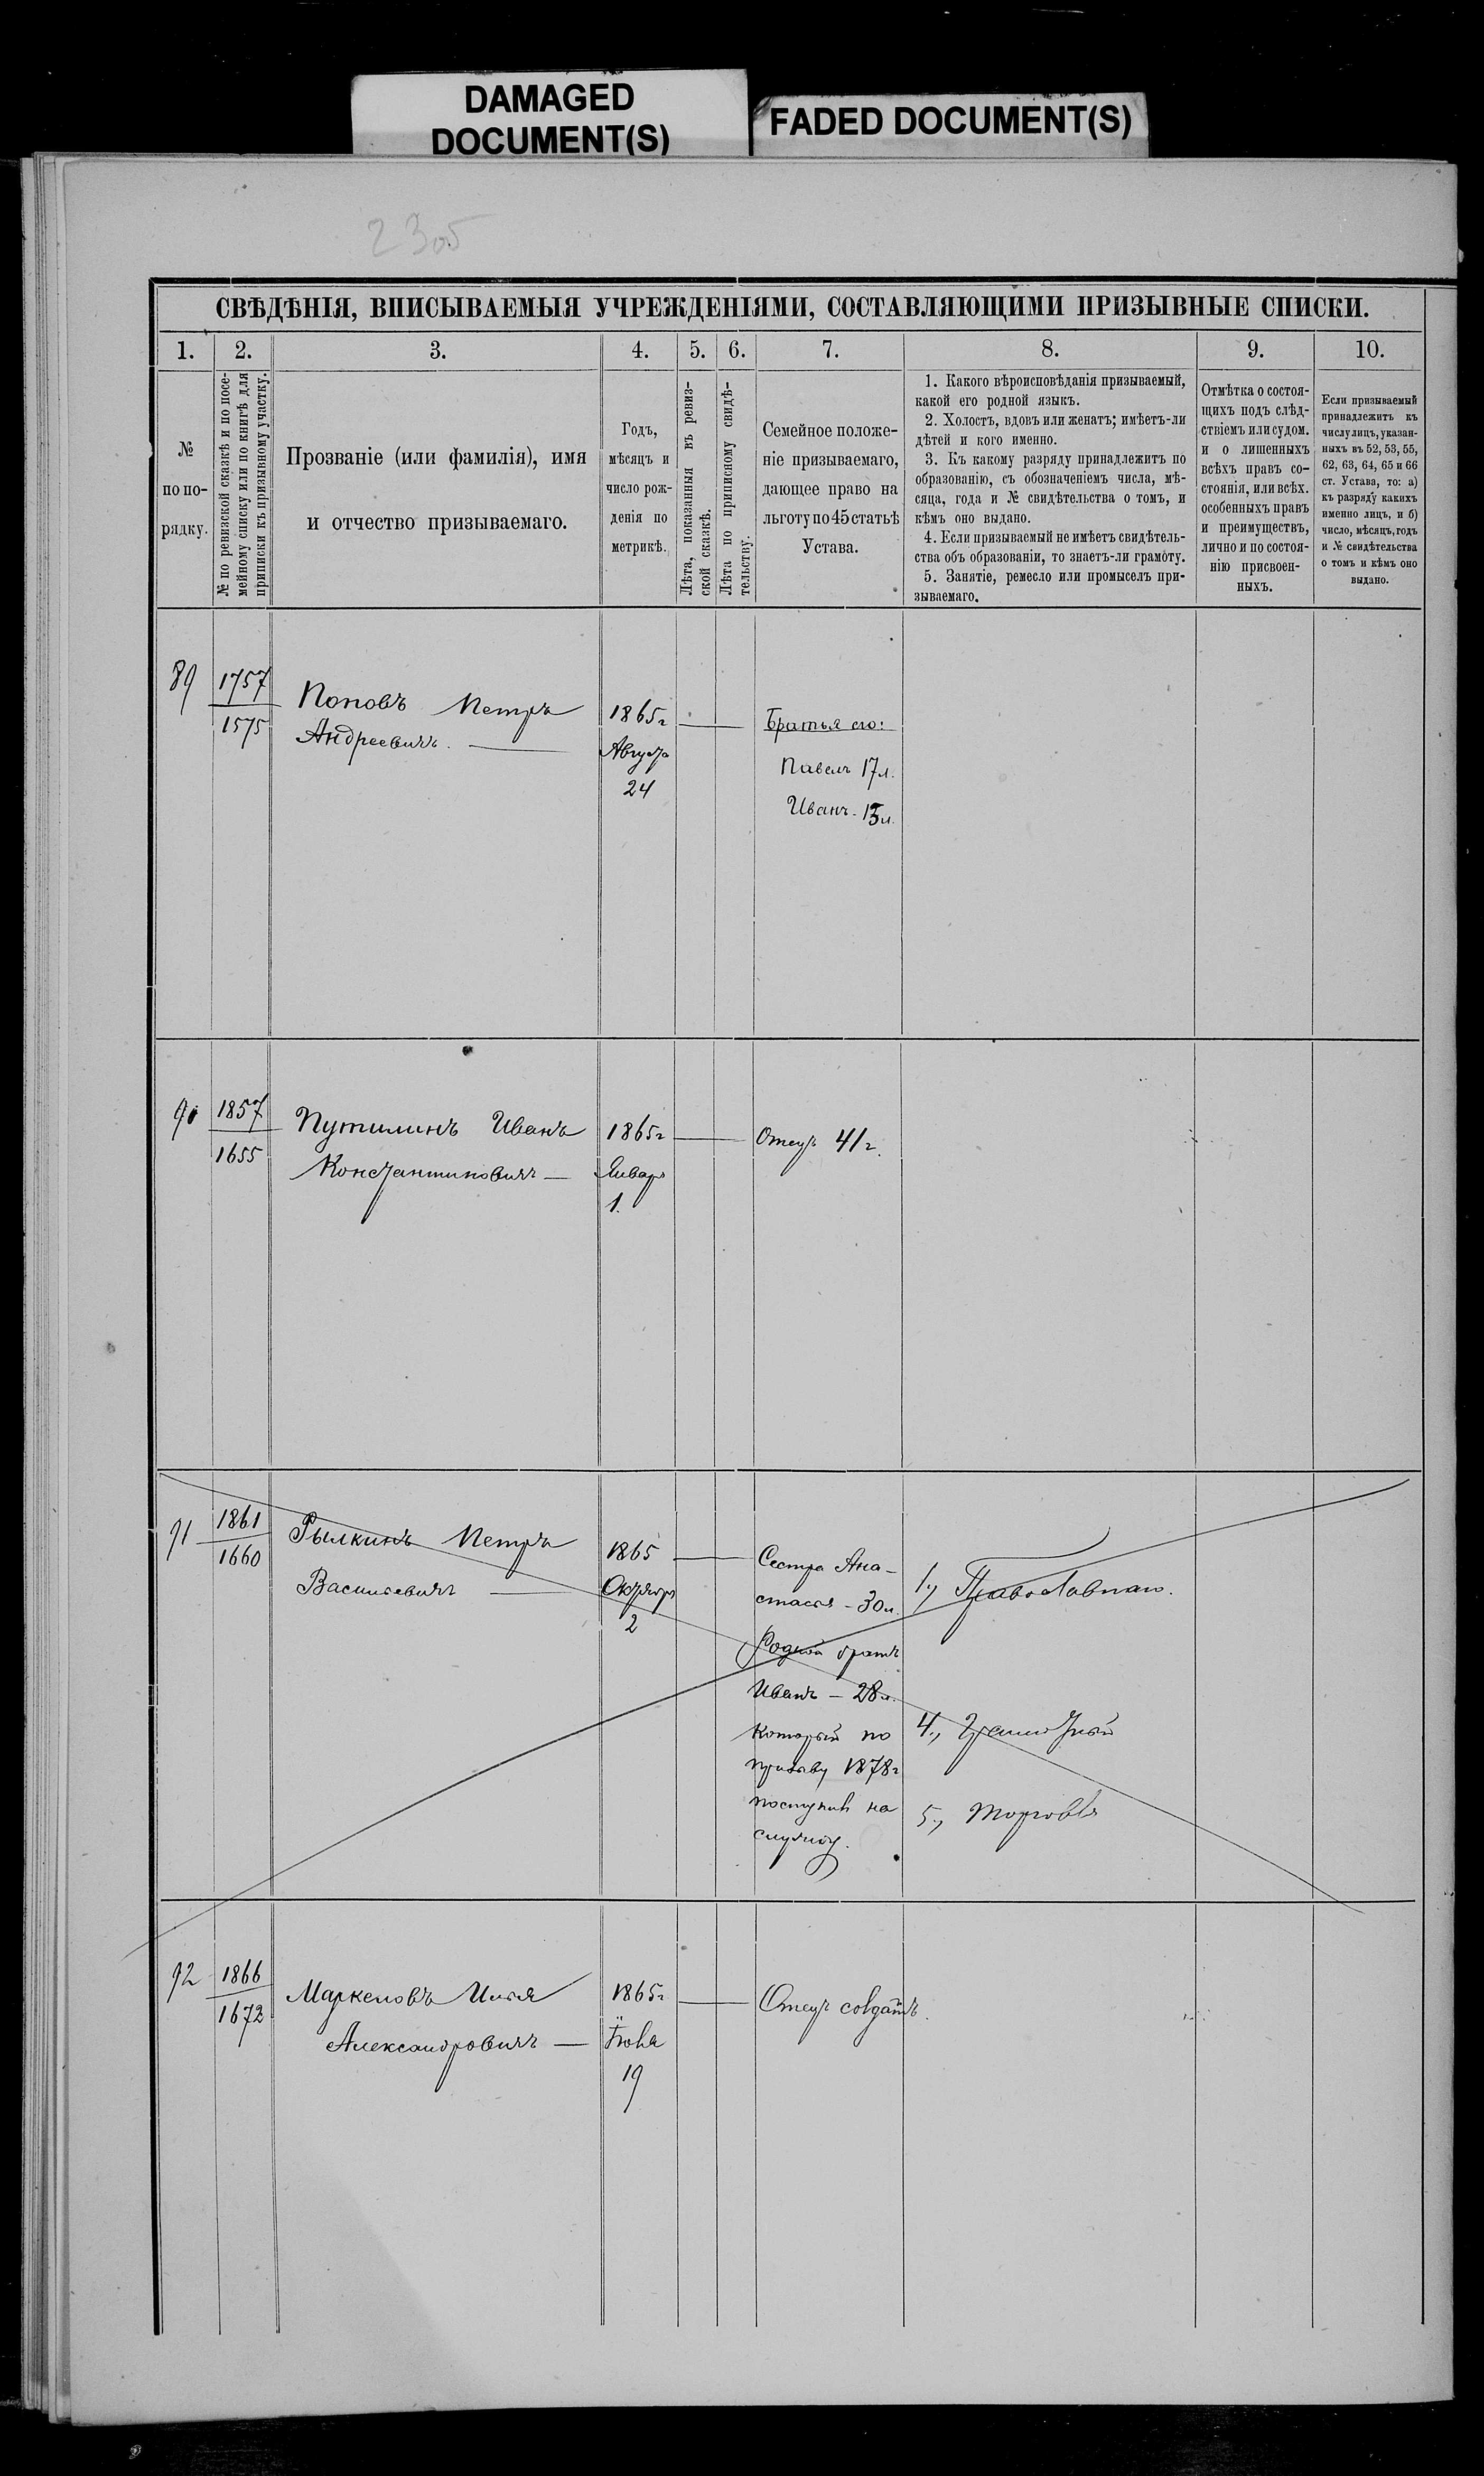 DAMAGED
DOCUMENT(S)
FADED DOCUMENT(S)
2305
СВѢДѢНІЯ, ВПИСЫВАЕМЫЯ УЧРЕЖДЕНІЯМИ, СОСТАВЛЯЮЩИМИ ПРИЗЫВНЫЕ СПИСКИ.
1. 2. 3. 4. 5. 6. 7. 8. 9. 10.
№
по по-
рядку.
№ по ревизской сказкѣ и по посе-
мейному списку или по книгѣ для
приписки къ призывному участку.
Прозваніе (или фамилія), имя
и отчество призываемаго.
Годъ,
мѣсяцъ и
число рож-
денія по
метрикѣ.
Лѣта, показанныя въ ревиз-
ской сказкѣ.
Лѣта по приписному свидѣ-
тельству.
Семейное положе-
ніе призываемаго,
дающее право на
льготу по 45 статьѣ
Устава.
1. Какого вѣроисповѣданія призываемый,
какой его родной языкъ.
2. Холостъ, вдовъ или женатъ; имѣетъ-ли
дѣтей и кого именно.
3. Къ какому разряду принадлежитъ по
образованію, съ обозначеніемъ числа, мѣ-
сяца, года и № свидѣтельства о томъ, и
кѣмъ оно выдано.
4. Если призываемый не имѣетъ свидѣтель-
ства объ образованіи, то знаетъ-ли грамоту.
5. Занятіе, ремесло или промыселъ при-
зываемаго.
Отмѣтка о состоя-
щихъ подъ слѣд-
ствіемъ или судом.
и о лишенныхъ
всѣхъ правъ со-
стоянія, или всѣх.
особенныхъ правъ
и преимуществъ,
лично и по состоя-
нію присвоен-
ныхъ.
Если призываемый
принадлежитъ къ
числу лицъ, указан-
ныхъ въ 52, 53, 55,
62, 63, 64, 65 и 66
ст. Устава, то: а)
къ разряду какихъ
именно лицъ, и б)
число, мѣсяцъ, годъ
и № свидѣтельства
о томъ и кѣмъ оно
выдано.
89
1757
1575
Поповъ Петръ
Андреевичъ.
1865г
Августа
24
Братья его:
Павелъ 17л.
Иванъ. 15л.
90
1857
1655
Путилинъ Иванъ
Константиновичъ —
1865г
Январь
1.
Отецъ 41г.
91
1861
1660
Рылкинъ Петръ
Васильевичъ
1865
Октября
2
Сестра Ана-
стасія - 30л.
Родной братъ
Иванъ - 28л.
который по
призыву 1878г
поступилъ на
службу.
1., Православнаго.
4., Грамотный
5., Торговля
92
1866
1672
Маркеловъ Илья
Александровичъ —
1865г
Іюля
19
Отецъ солдатъ.